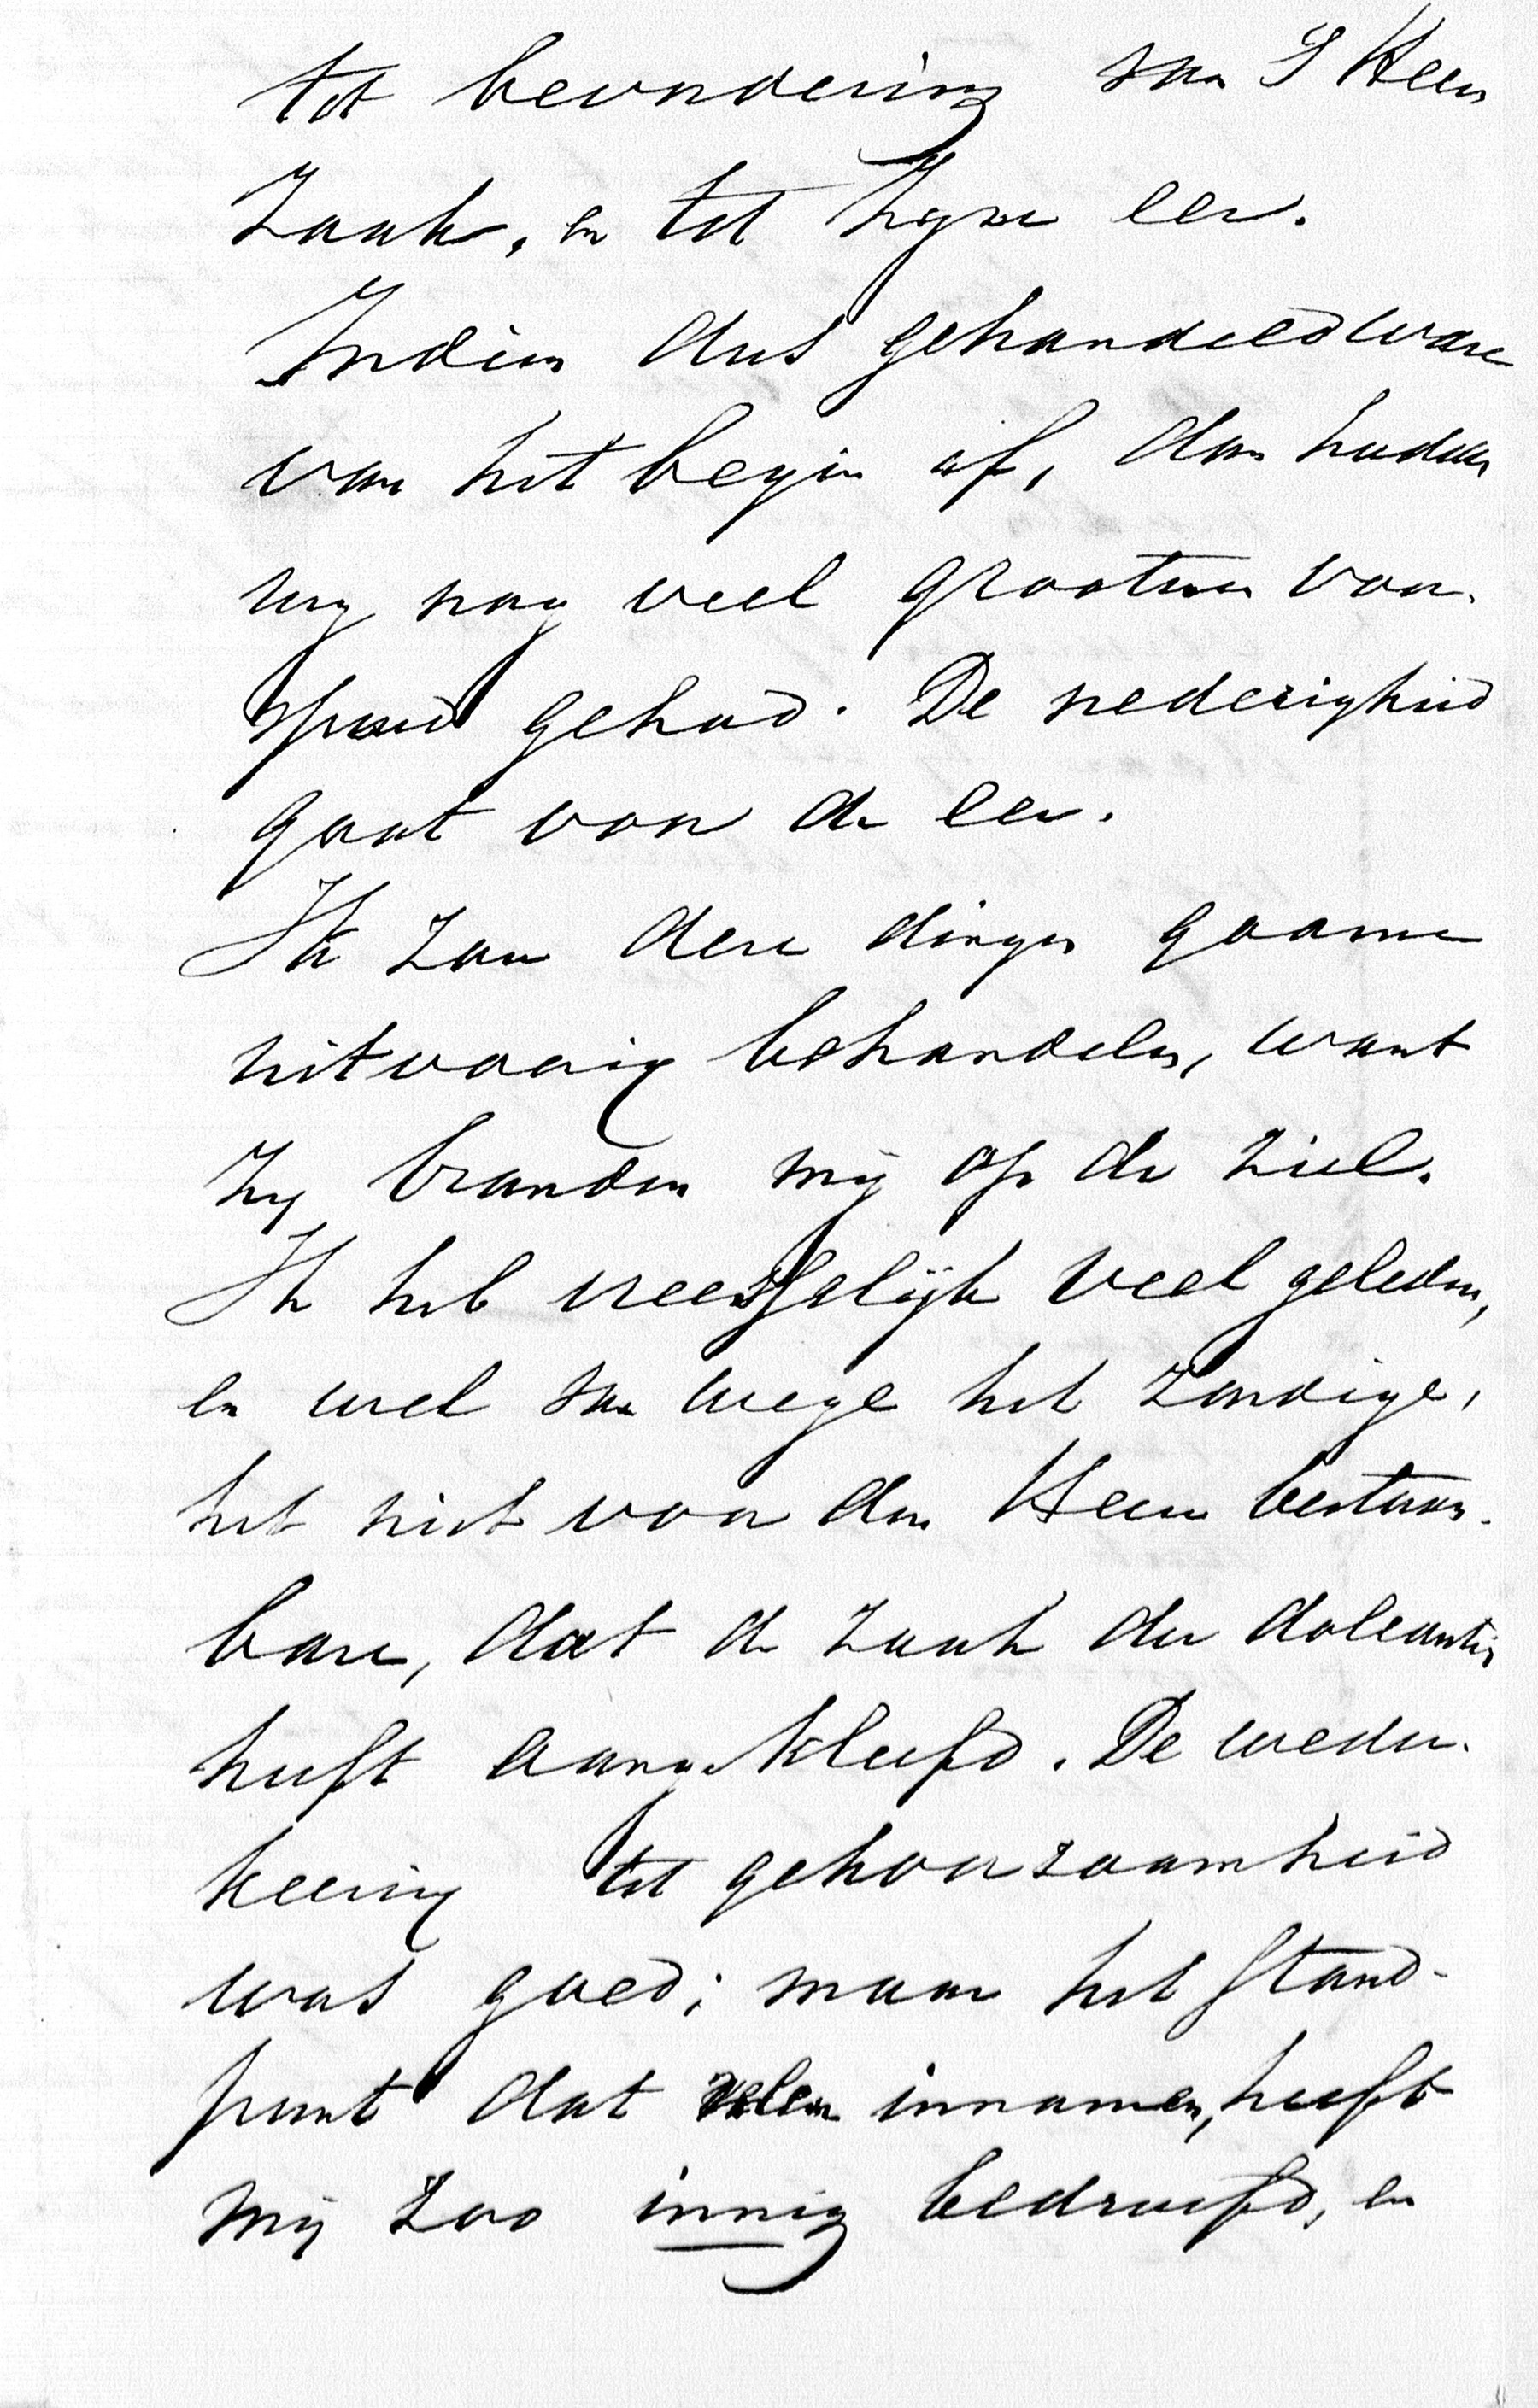 tot bevordering van 's Heeren
Zaak, en tot Zijne eer.
Indien dus gehandeld ware
van het begin af, dan hadden
wij nog veel grooteren voor-
spoed gehad. De nederigheid
gaat voor de eer.
Ik zou deze dingen gaarne
uitvoerig behandelen, want
zij branden mij op de ziel.
Ik heb vreesselijk veel geleden,
en wel van wege het zondige,
het niet voor den Heere bestaan-
bare, dat de zaak der doleantie
heeft aangekleefd. De weder-
keering tot gehoorzaamheid
was goed; maar het stand-
punt dat velen innamen, heeft
mij zoo innig bedroefd, en